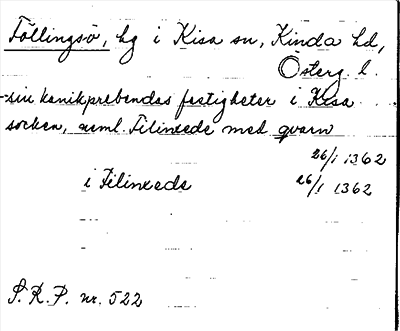 Föllingsö, hg i Kisa sn, Kinda hd,
Österg. l.
-sin kanikprebendas fastigheter i Kisa
socken, neml. Filinxede med qvarn
26/1 1362
i Filinxeds 26/1 1362
S.R.P. nr. 522